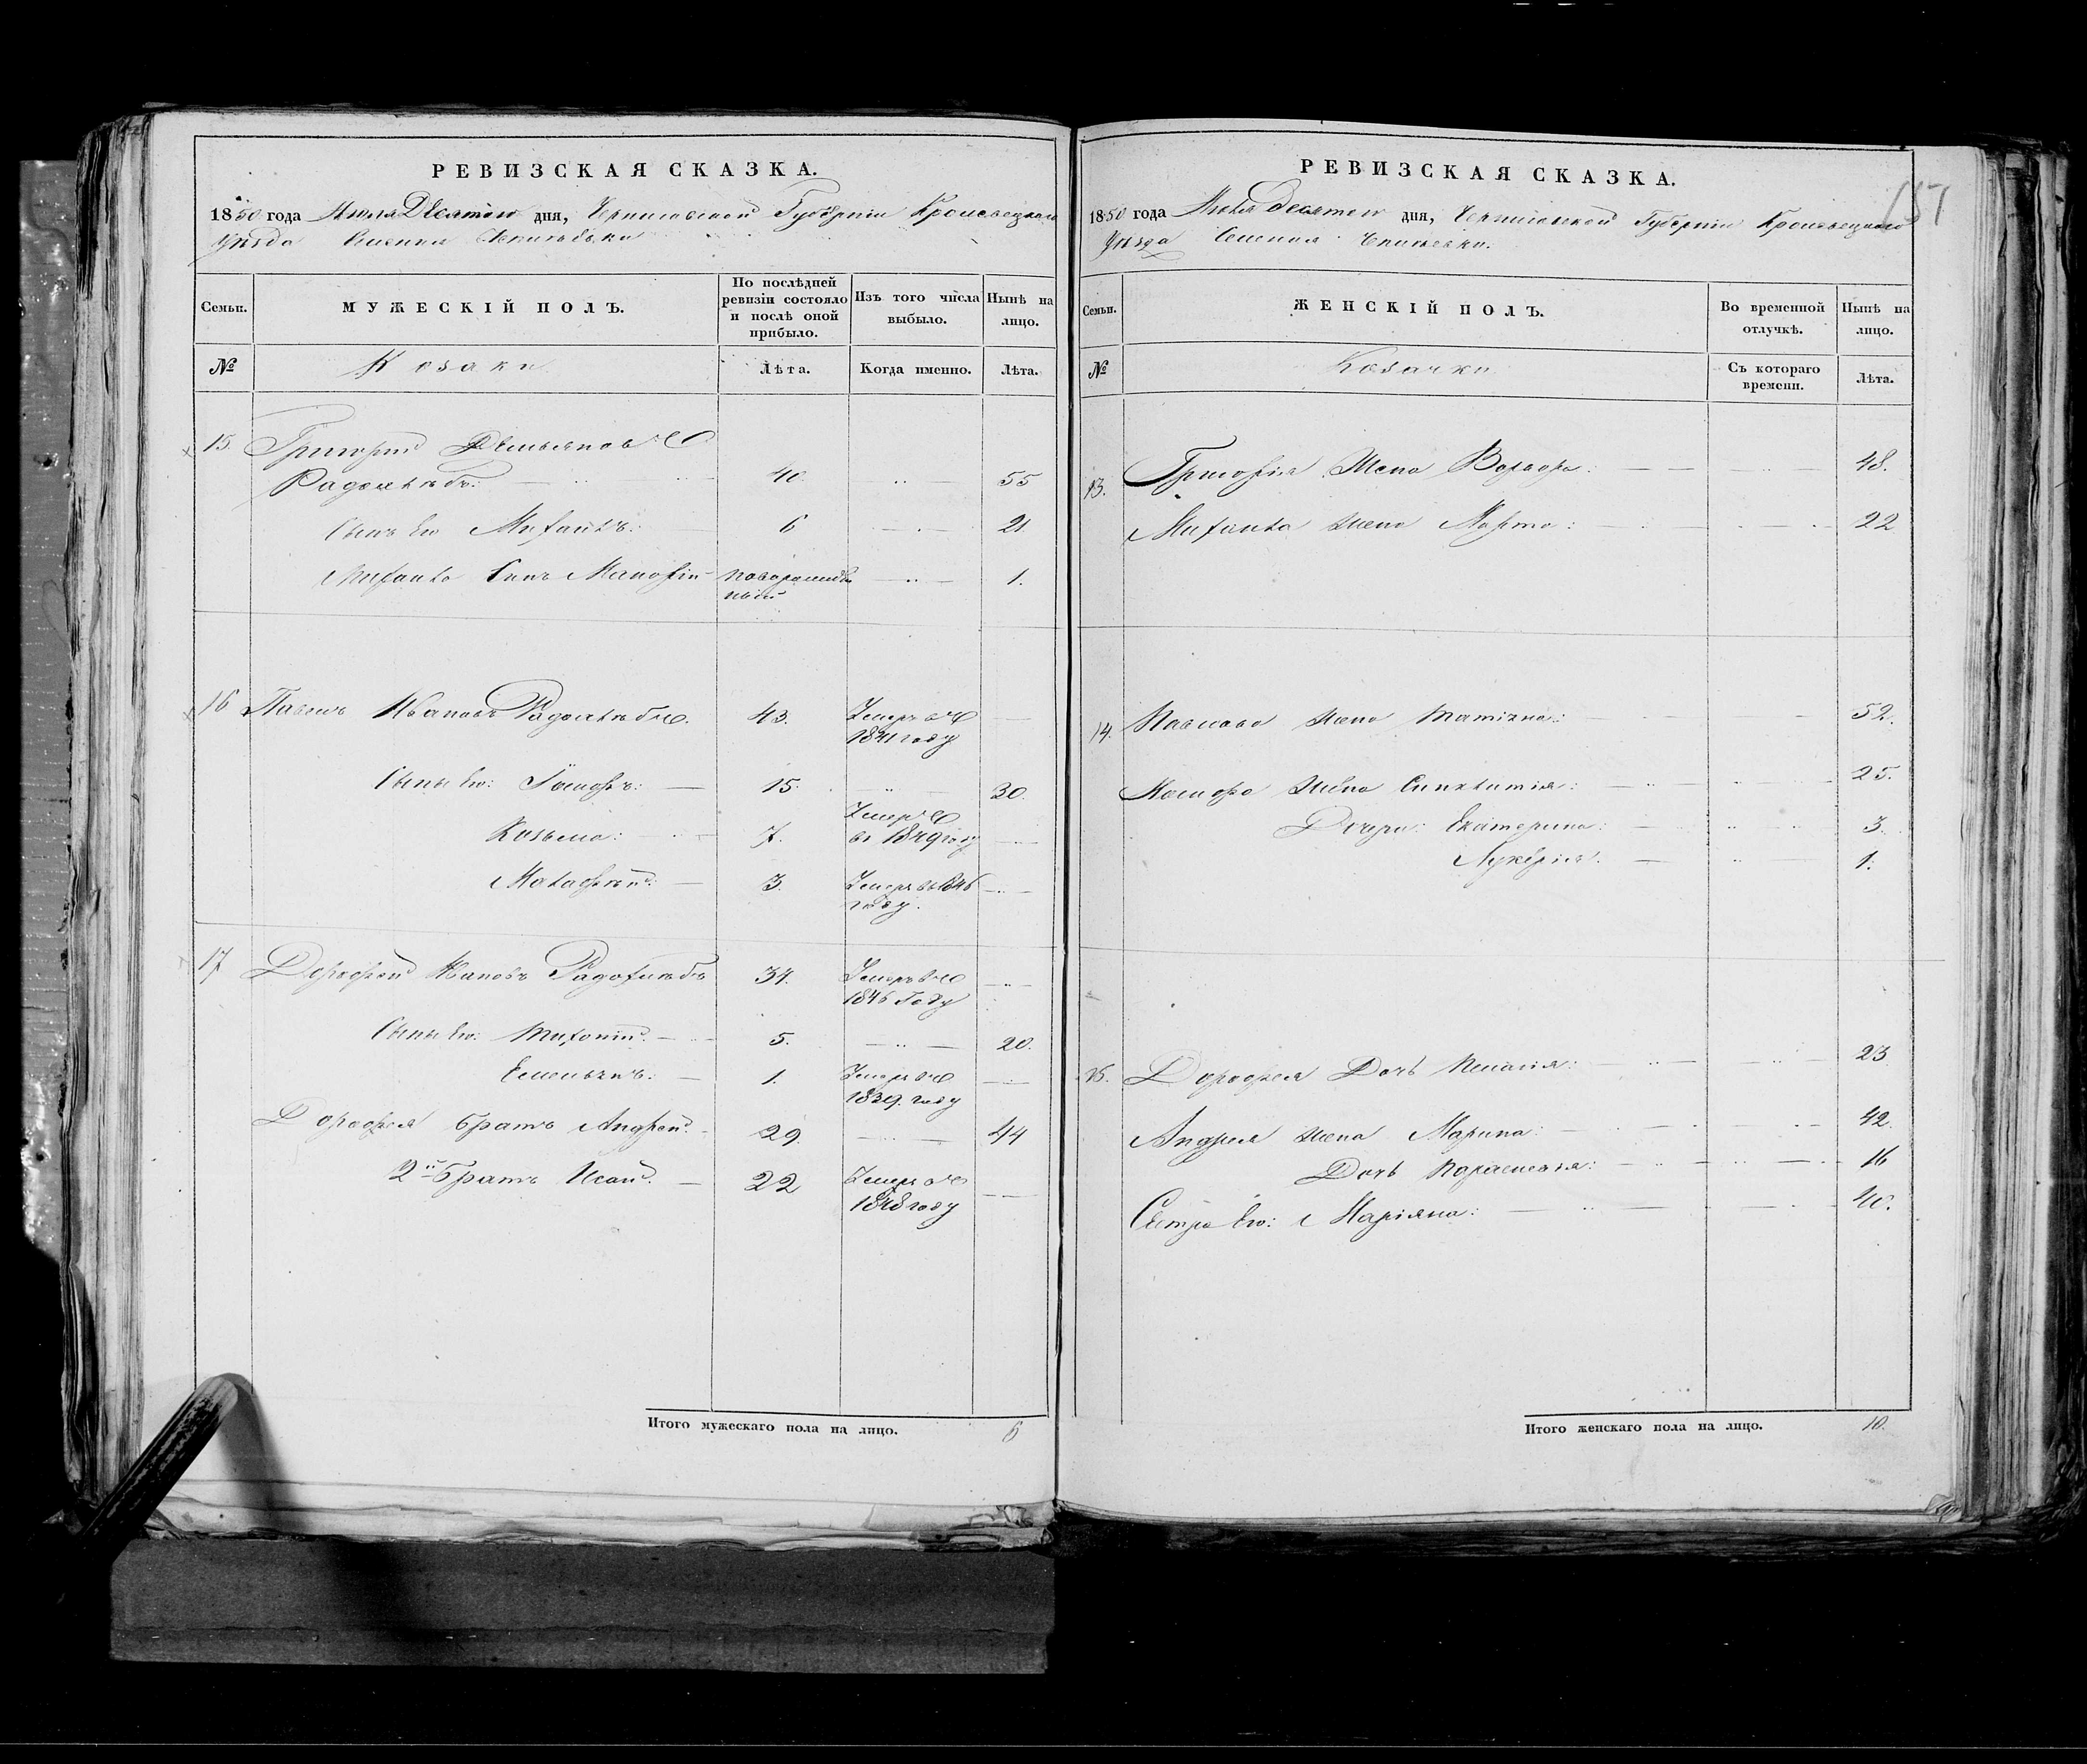 РЕВИЗСКАЯ СКАЗКА.
1850 года Июля Десятого дня, Черниговской Губерніи Кролевецкого
Уѣзда Селения
Семьи.
МУЖЕСКІЙ ПОЛЪ.
По послѣдней ревизіи состояло и послѣ оной прибыло.
Изъ того числа выбыло.
Нынѣ на лицо.
№
Козаки
Лѣта.
Когда именно.
Лѣта.
15. Григорий Демьяновъ
40 55
Сынъ Его Михаилъ: 6 21
Михаила Сынъ новорожденный 1.
16 Павелъ Ивановъ 43. Умеръ въ 1841 году
Сыны Его: 15. 30.
Козьма: 7. Умеръ въ 1849 году
3. Умеръ въ 1846 году.
17 Дорофей Ивановъ 34. Умеръ въ 1846 Году
Сыны Его: 5. 20.
Емельянъ: 1. Умеръ въ 1839. году
Дорофея братъ Андрей 29. 44
2й братъ Исай 22 Умеръ въ 1848 году
Итого мужескаго пола на лицо. 6
РЕВИЗСКАЯ СКАЗКА.
157
1850 года Июля Десятого дня, Черниговской Губерніи Кролевецкого
Уѣзда Селения
Семьи.
ЖЕНСКІЙ ПОЛЪ.
Во временной отлучкѣ.
Нынѣ на лицо.
№
Козачки
Съ котораго времени.
Лѣта.
Григорія Жена Варвара: 48.
Михаила жена Марта: 22
14. Павлова жена 52.
жена 25.
Дочери: Екатерина: 3.
Лукерія: 1.
Дорофея Дочь Пелагія: 23
Андрея жена Марина: 42.
Дочь Параскевія: 16
Сестра Его: Маріяна: 40.
Итого женскаго пола на лицо. 10.